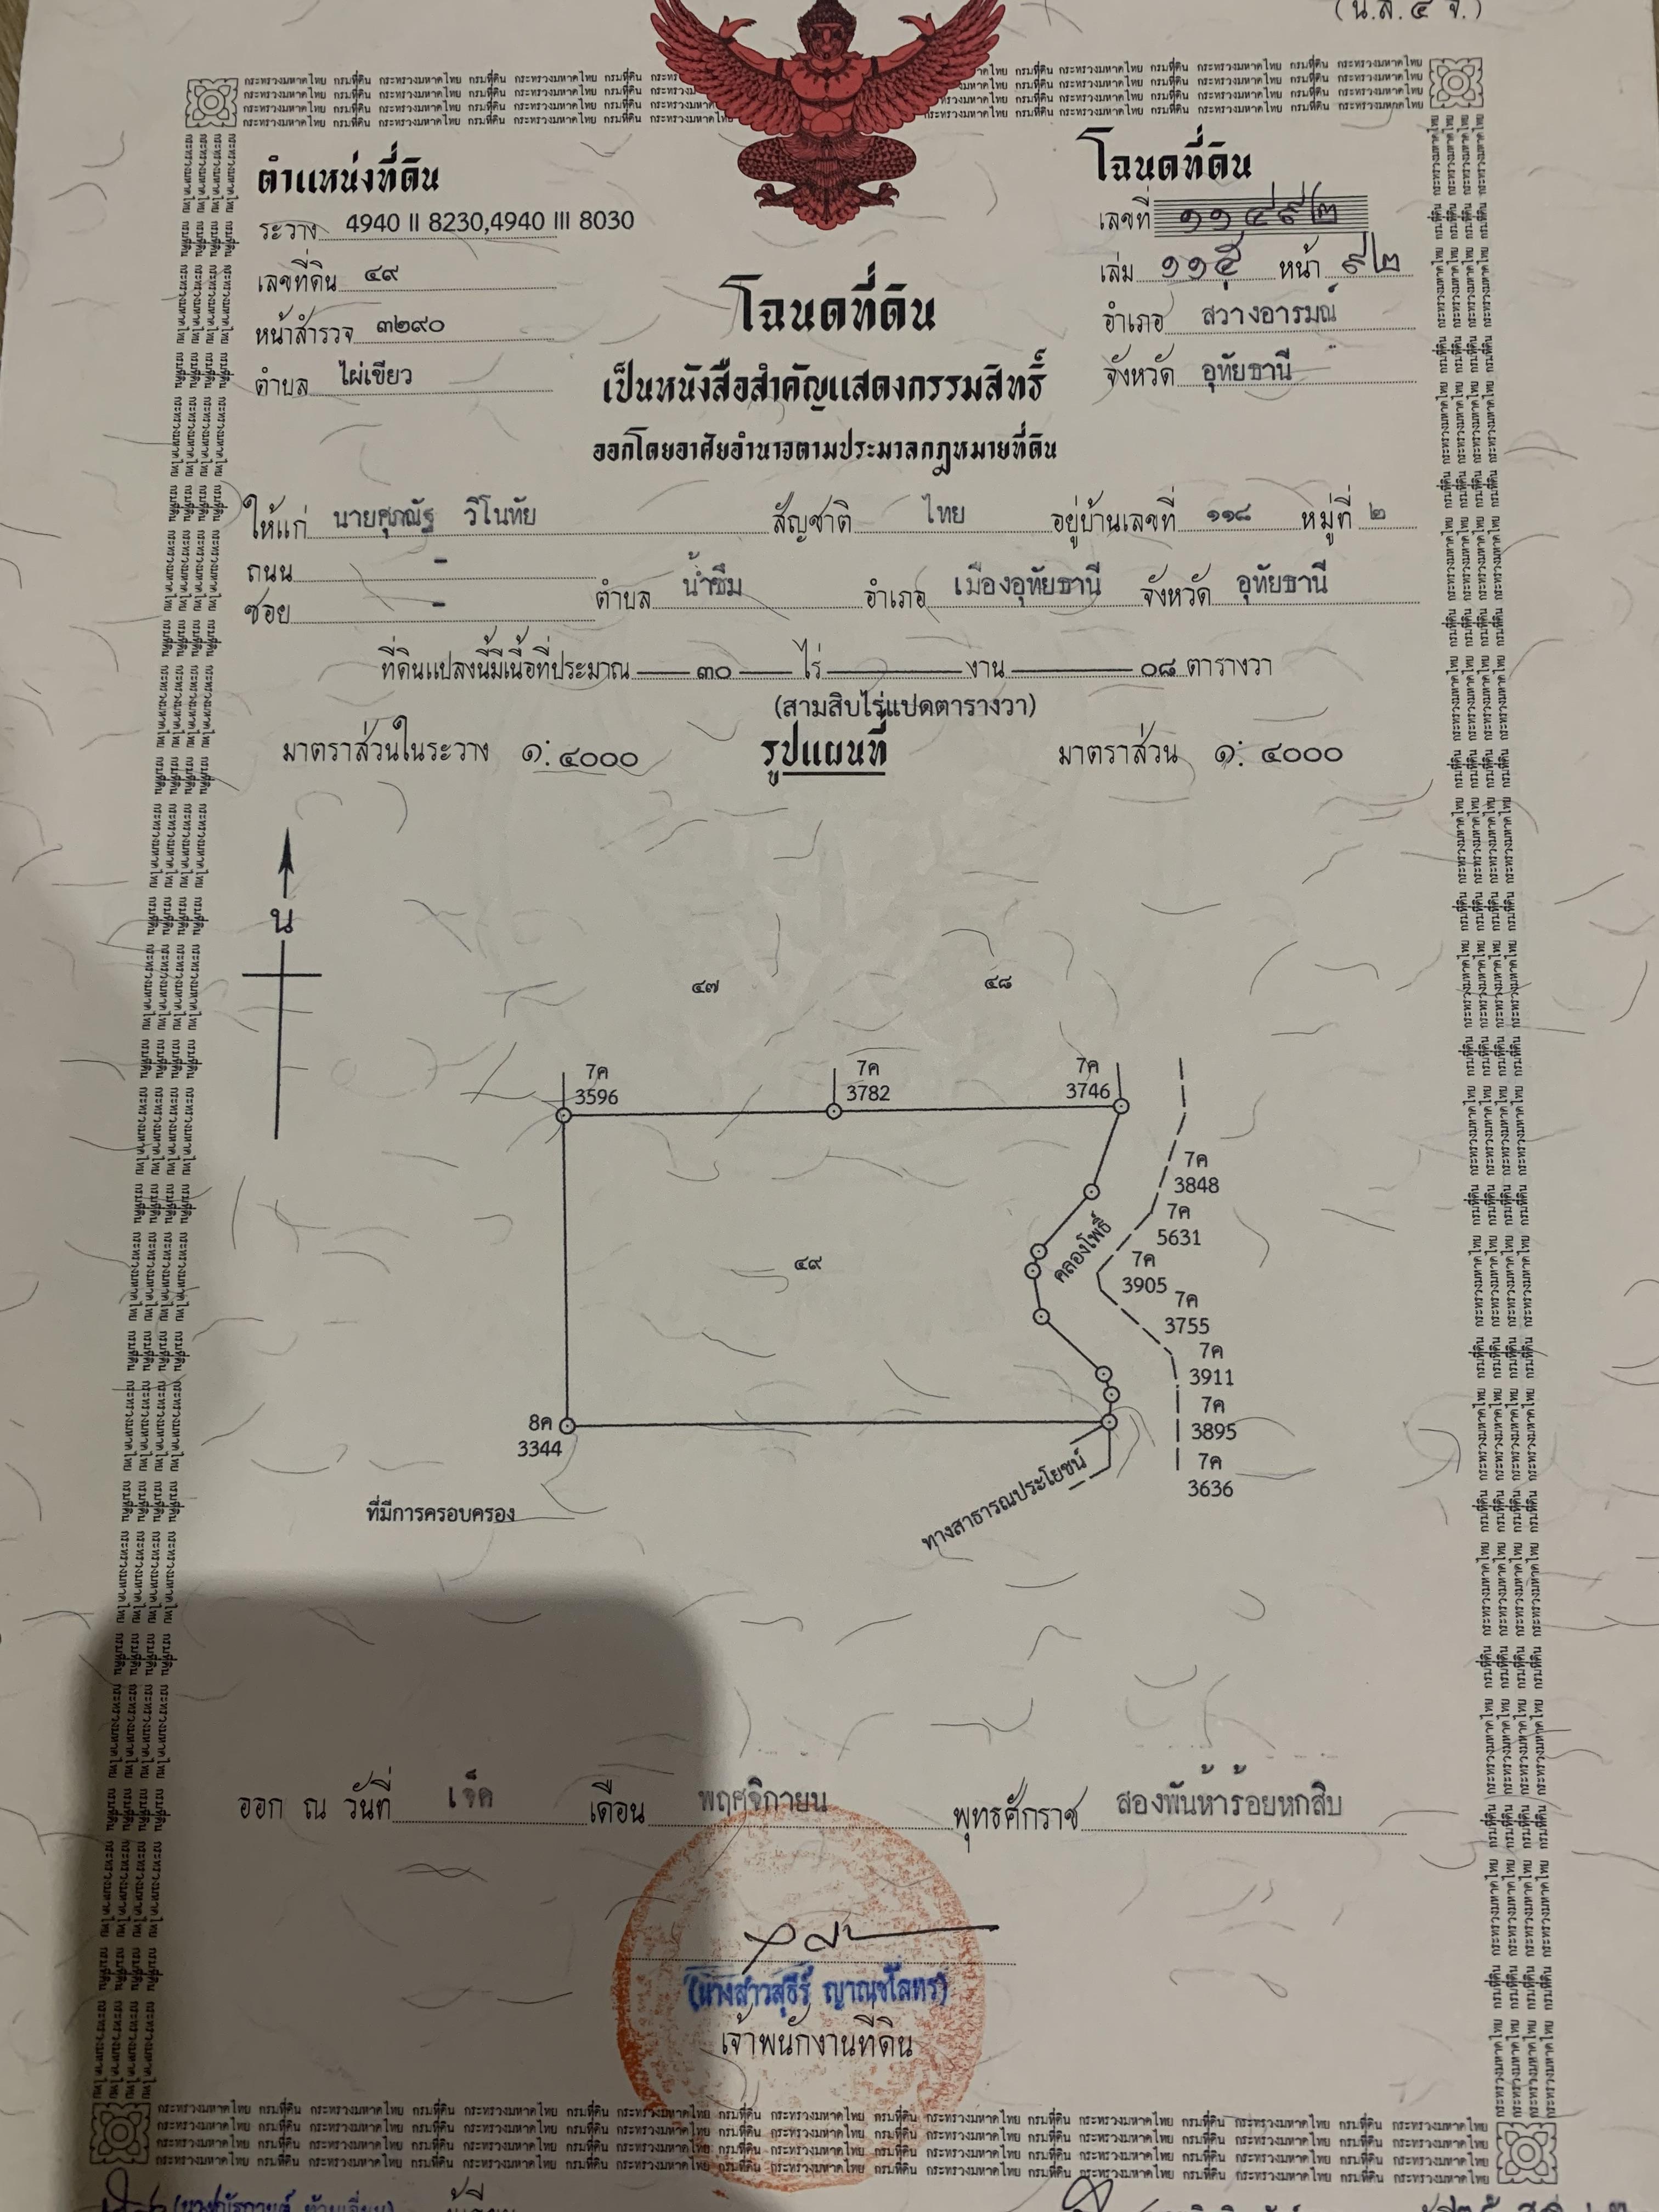 (น.ส. ๔ จ.)
ตำแหน่งที่ดิน
ระวาง 4940 II 8230,4940 III 8030
เลขที่ดิน ๔๙
หน้าสำรวจ ๓๒๙๐
ตำบล ไผ่เขียว
โฉนดที่ดิน
เลขที่ ๑๑๔๙๒
เล่ม ๑๑๕ หน้า ๙๒
อำเภอ สว่างอารมณ์
จังหวัด อุทัยธานี
โฉนดที่ดิน
เป็นหนังสือสำคัญแสดงกรรมสิทธิ์
ออกโดยอาศัยอำนาจตามประมวลกฎหมายที่ดิน
ให้แก่ นายศุภณัฐ วิโนทัย สัญชาติ ไทย อยู่บ้านเลขที่ ๑๑๘ หมู่ที่ ๒
ถนน -
ซอย - ตำบล น้ำซึม อำเภอ เมืองอุทัยธานี จังหวัด อุทัยธานี
ที่ดินแปลงนี้มีเนื้อที่ประมาณ ๓๐ ไร่ งาน ๐๘ ตารางวา
(สามสิบไร่แปดตารางวา)
มาตราส่วนในระวาง ๑: ๔๐๐๐ รูปแผนที่ มาตราส่วน ๑: ๔๐๐๐
น
๔๗ ๔๘
7ค 3596
7ค 3782
7ค 3746
7ค 3848
7ค 5631
7ค 3905
7ค 3755
7ค 3911
7ค 3895
7ค 3636
คลองโพธิ์
๔๙
8ค 3344
ที่มีการครอบครอง
ทางสาธารณประโยชน์
ออก ณ วันที่ เจ็ด เดือน พฤศจิกายน พุทธศักราช สองพันห้าร้อยหกสิบ
เจ้าพนักงานที่ดิน
กระทรวงมหาดไทย กรมที่ดิน